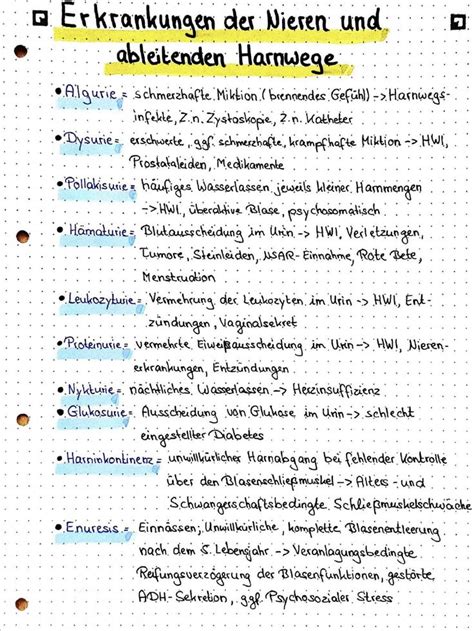 Erkrankungen der Nieren und
ableitenden Harnwege
• Algurie = schmerzhafte Miktion (brennendes Gefühl) -> Harnwegs-
infekte, Z.n. Zystoskopie, Z.n. Katheter
• Dysurie = erschwerte, ggf. schmerzhafte, krampfhafte Miktion -> HWI,
Prostataleiden, Medikamente
• Pollakisurie = häufiges Wasserlassen jeweils kleiner Harnmengen
-> HWI, überaktive Blase, psychosomatisch
• Hämaturie = Blutausscheidung im Urin -> HWI, Verletzungen,
Tumore, Steinleiden, NSAR-Einnahme, Rote Bete,
Menstruation
• Leukozyturie = Vermehrung der Leukozyten im Urin -> HWI, Ent-
zündungen, Vaginalsekret
• Proteinurie = vermehrte Eiweißausscheidung im Urin -> HWI, Nieren-
erkrankungen, Entzündungen
• Nykturie = nächtliches Wasserlassen -> Herzinsuffizienz
• Glukosurie = Ausscheidung von Glukose im Urin -> schlecht
eingestellter Diabetes
• Harninkontinenz = unwillkürlicher Harnabgang bei fehlender Kontrolle
über den Blasenschließmuskel -> Alters- und
Schwangerschaftsbedingte Schließmuskelschwäche
• Enuresis = Einnässen; Unwillkürliche, komplette Blasenentleerung
nach dem 5. Lebensjahr -> Veranlagungsbedingte
Reifungsverzögerung der Blasenfunktionen, gestörte
ADH-Sekretion, ggf. Psychosozialer Stress